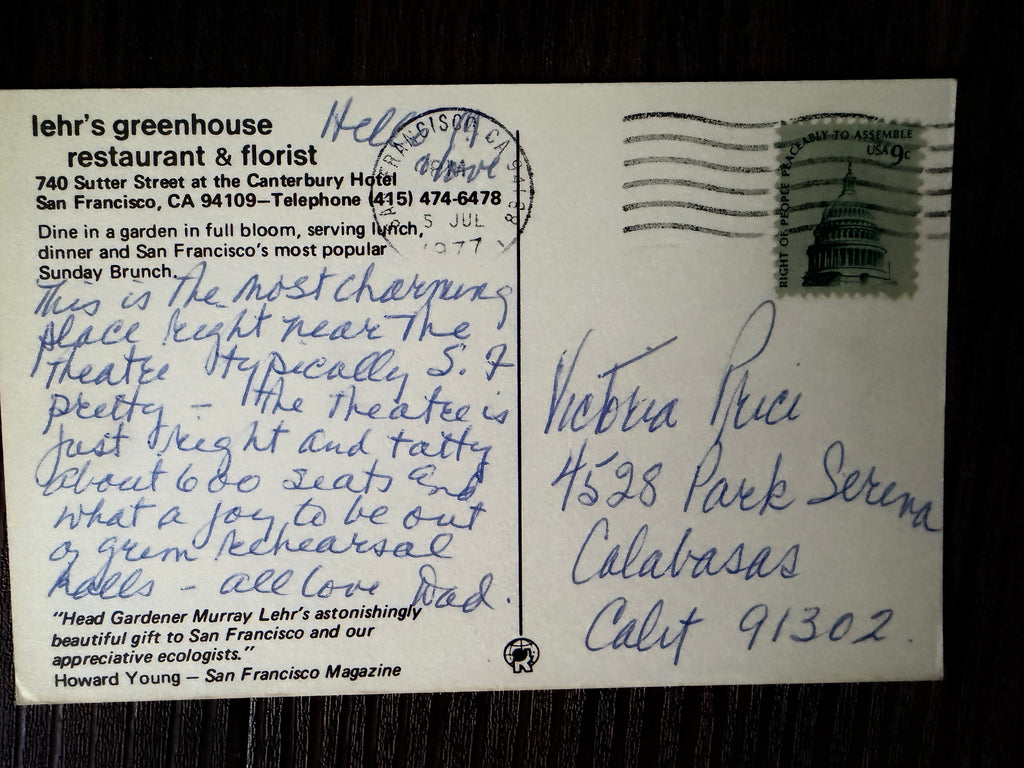 lehr's greenhouse
restaurant & florist
740 Sutter Street at the Canterbury Hotel
San Francisco, CA 94109—Telephone (415) 474-6478
Dine in a garden in full bloom, serving lunch,
dinner and San Francisco's most popular
Sunday Brunch.
This is the most charming
place right near the
theatre typically S. F
pretty – the theatre is
just right and tatty
about 600 seats and
what a joy to be out
of grim rehearsal
halls – all love Dad.
"Head Gardener Murray Lehr's astonishingly
beautiful gift to San Francisco and our
appreciative ecologists."
Howard Young — San Francisco Magazine
SAN FRANCISCO CA
5 JUL
1977
RIGHT OF PEOPLE PEACEABLY TO ASSEMBLE
USA 9c
Victoria Price
4528 Park Serena
Calabasas
Calif 91302.